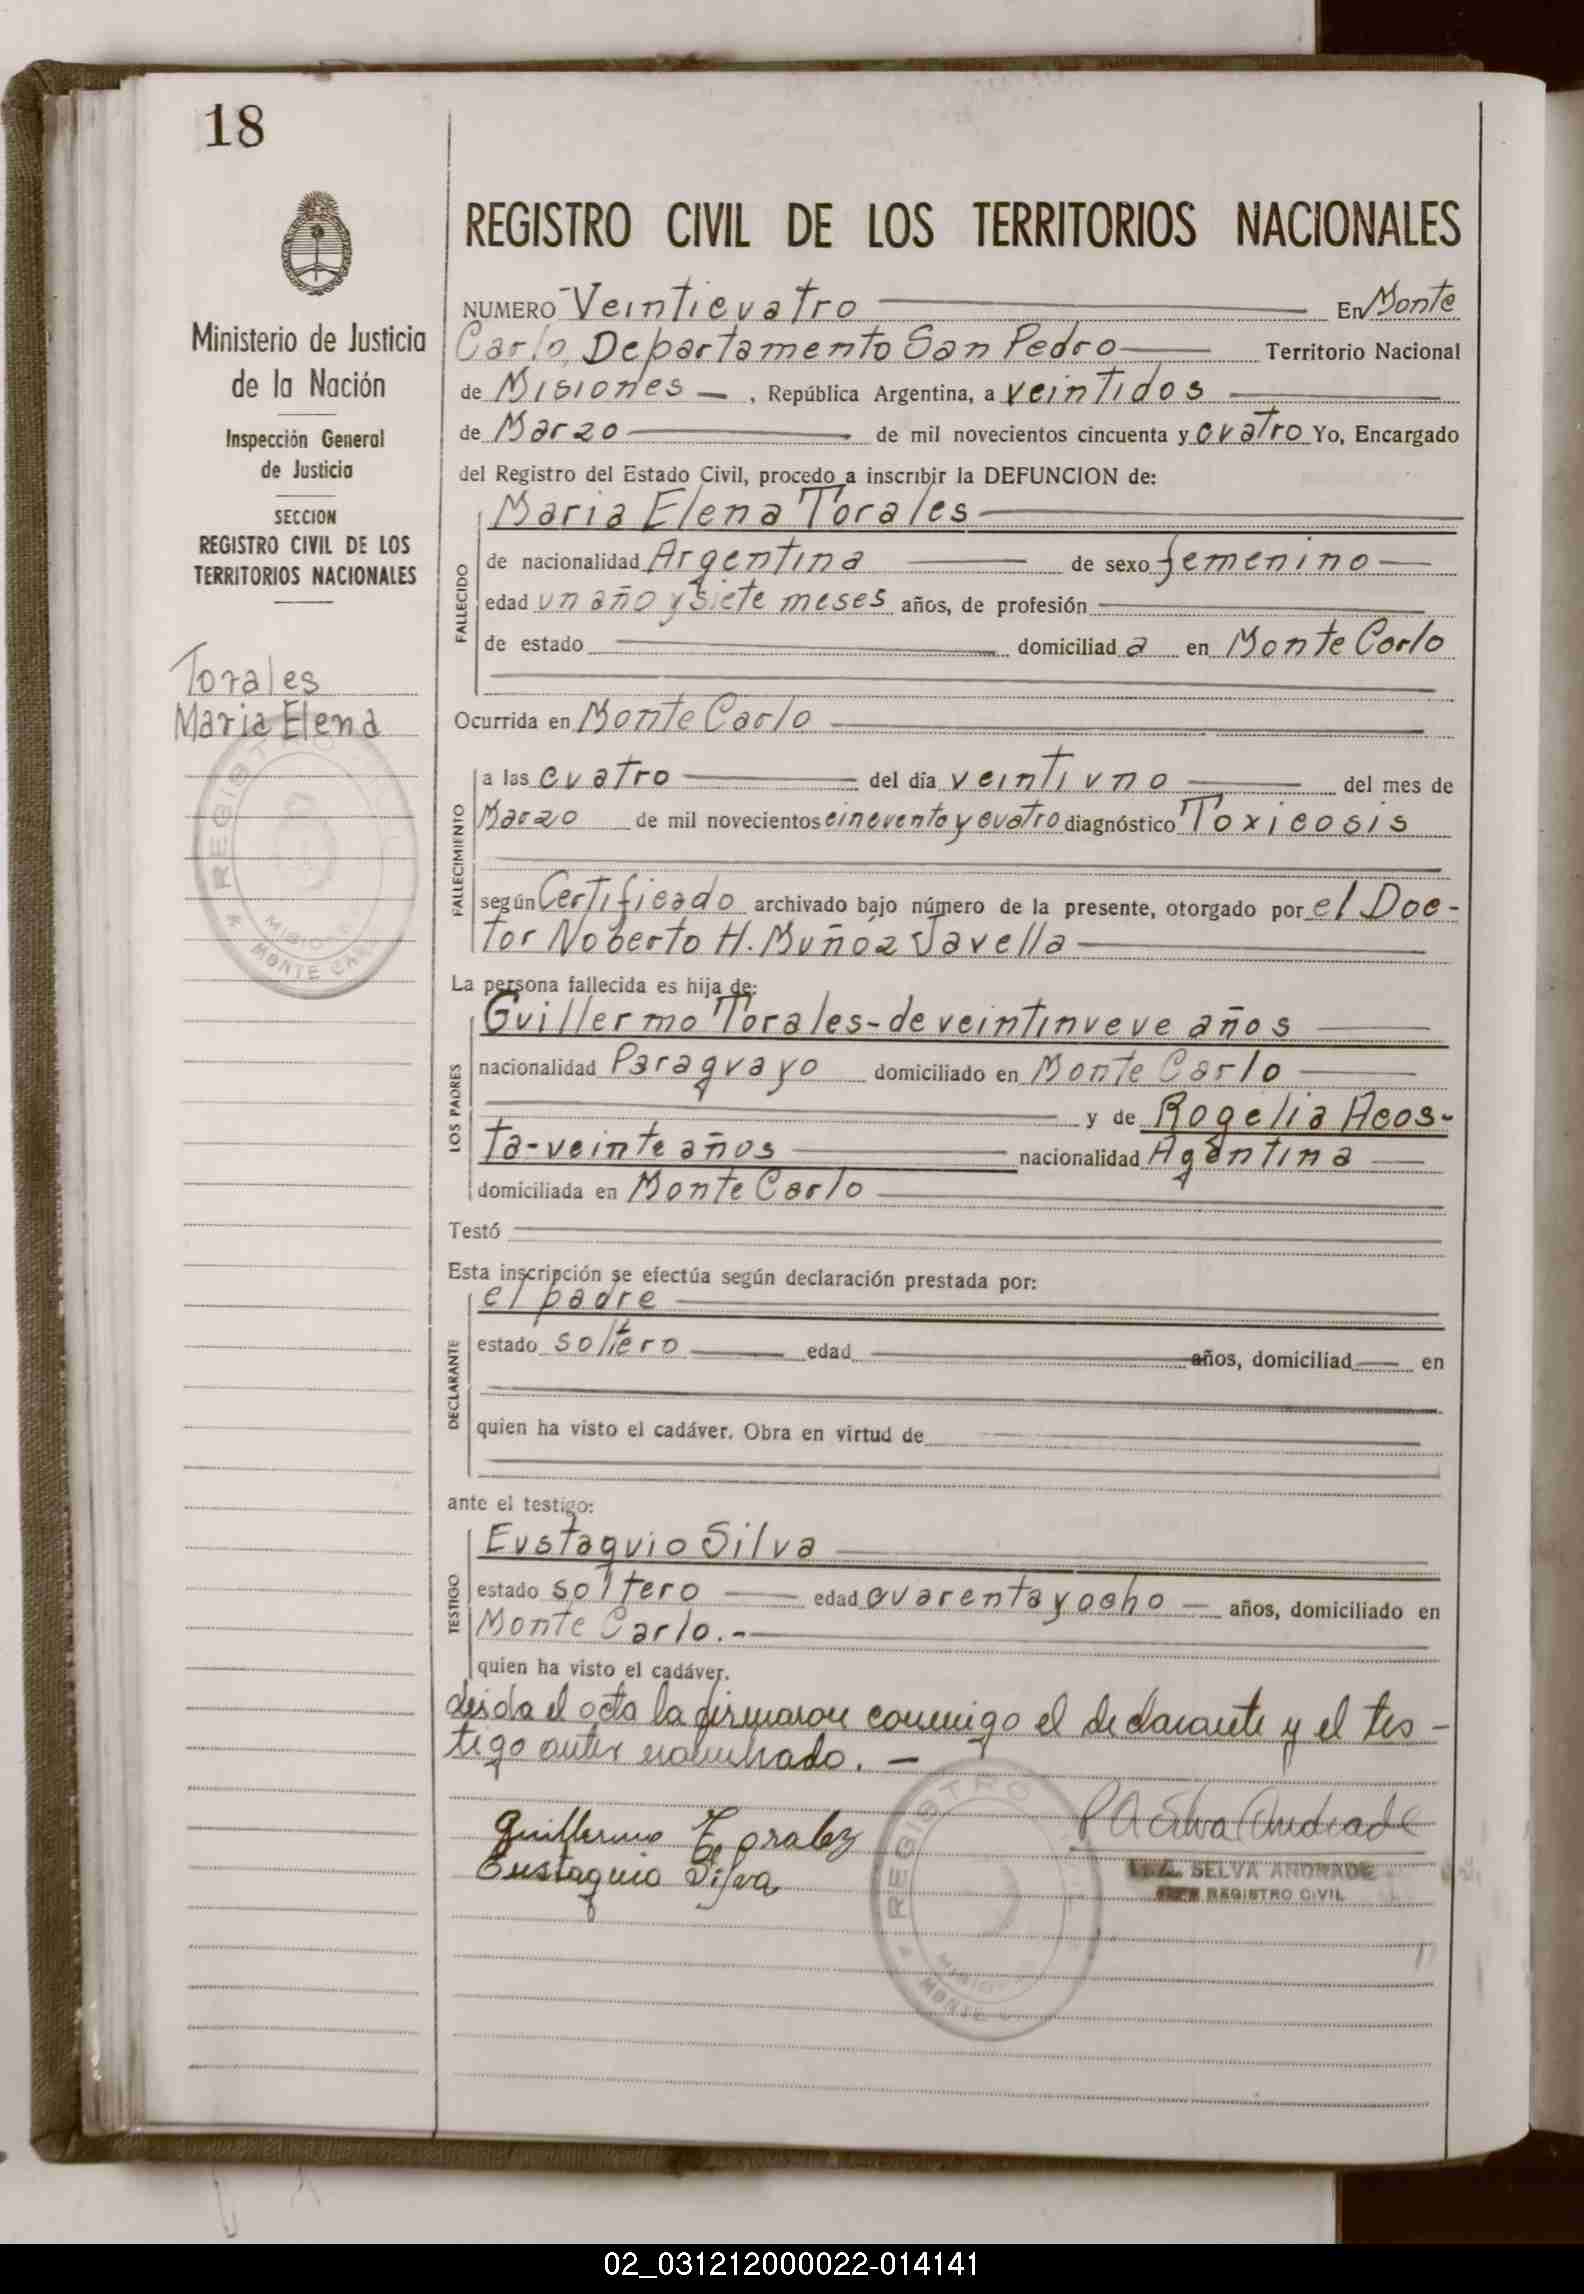 18
Ministerio de Justicia
de la Nación
Inspección General
de Justicia
SECCION
REGISTRO CIVIL DE LOS
TERRITORIOS NACIONALES
Torales
Maria Elena
REGISTRO
MISIONES
MONTE CARLO
REGISTRO CIVIL DE LOS TERRITORIOS NACIONALES
NUMERO Veinticuatro En Monte
Carlo, Departamento San Pedro Territorio Nacional
de Misiones, República Argentina, a veintidos
de Marzo de mil novecientos cincuenta y cuatro Yo, Encargado
del Registro del Estado Civil, procedo a inscribir la DEFUNCION de:
Maria Elena Torales
FALLECIDO
de nacionalidad Argentina de sexo femenino
edad un año y siete meses años, de profesión
de estado domiciliad a en Monte Carlo
Ocurrida en Monte Carlo
FALLECIMIENTO
a las cuatro del día veintiuno del mes de
Marzo de mil novecientos cincuenta y cuatro diagnóstico Toxicosis
según Certificado archivado bajo número de la presente, otorgado por el Doc-
tor Noberto H. Muñoz Javella
La persona fallecida es hija de:
LOS PADRES
Guillermo Torales-de veintinueve años
nacionalidad Paraguayo domiciliado en Monte Carlo
y de Rogelia Acos-
ta-veinte años nacionalidad Agentina
domiciliada en Monte Carlo
Testó
Esta inscripción se efectúa según declaración prestada por:
DECLARANTE
el padre
estado soltero edad años, domiciliad en
quien ha visto el cadáver. Obra en virtud de
ante el testigo:
TESTIGO
Eustaquio Silva
estado soltero edad cuarenta y ocho años, domiciliado en
Monte Carlo.-
quien ha visto el cadáver.
leida el acta la firmaron conmigo el declarante y el tes-
tigo antes nombrado.-
Guillermo Toralez
Eustaquio Silva
REGISTRO
MONTE
SELVA ANDRADE
REGISTRO CIVIL
02_031212000022-014141